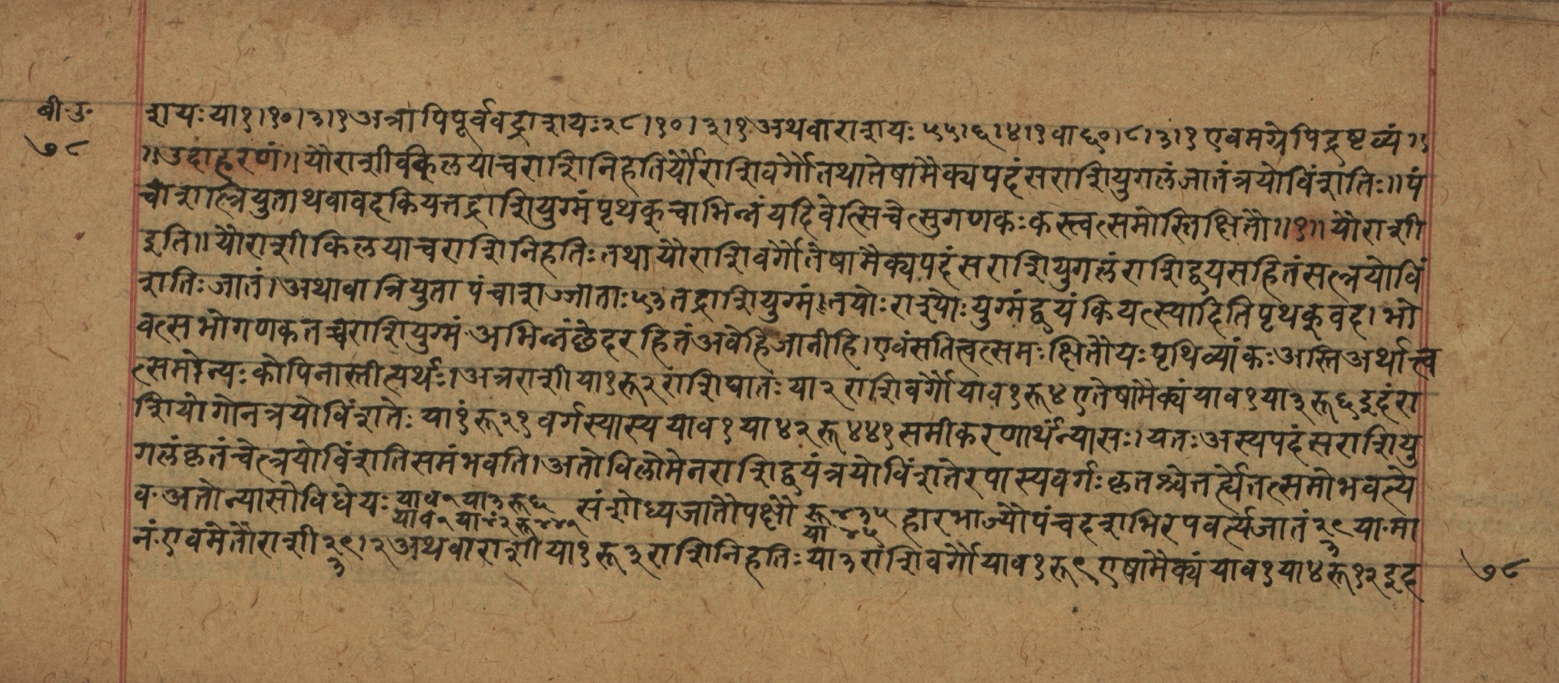 बी॰उ॰
७८
शयः या१।१०।३।१ अत्रापिपूर्ववद्राशयः २८।१०।३।१ अथवाराशयः ५५।६।४।१ वा ६०।८।३।१ एवमग्रेपिद्रष्टव्यं॥
॥उदाहरणं॥ यौराशीवकिलयाचराशिनिहतिर्यौराशिवर्गौतथातेषामैक्यपदंसराशियुगलंजातंत्रयोविंशतिः॥पं
चाशत्त्रियुताथवावदकियत्तद्राशियुग्मंपृथक्कृचाभिन्नंयदिवेत्सिचेत्सुगणकःकस्त्वत्समोस्तिक्षितौ॥१॥ यौराशी
इति॥ यौराशीकिलयाचराशिनिहतिःतथायौराशिवर्गौतेषामैक्यपदंसराशियुगलंराशिद्वयसहितंसत्त्रयोविं
शतिःजातं।अथावात्रियुतापंचाशज्जाताः५३तद्राशियुग्मं।तयोःराश्योःयुग्मंद्वयंकियत्स्यादितिपृथक्कुवद।भो
वत्सभोगणकतच्चराशियुग्मंअभिन्नंछेदरहितंअवेहिजानीहि।एवंसतित्वत्समःक्षितौयःपृथिव्यांकःअस्तिअर्थात्त्व
त्समोन्यःकोपिनास्तीत्यर्थः।अत्रराशीया१रू२राशिघातःया२राशिवर्गौयाव१रू४एतेषामैक्यंयाव१या२रू६इदंरा
शियोगोनत्रयोविंशतेःया१ंरू२१वर्गस्यास्ययाव१या४२रू४४१समीकरणार्थंन्यासः।यतःअस्यपदंसराशियु
गलंकृतंचेत्त्रयोविंशतिसमंभवति।अतोविलोमेनराशिद्वयंत्रयोविंशतेरपास्यवर्गःकृतश्चेत्तर्ह्येतत्समोभवत्ये
व॰अतोन्यासोविधेयः याव१या२रू६ याव१या४ं२रू४४१ संशोध्यजातौपक्षौ रू४३५ या४५ हारभाज्यौपंचदशभिरपवर्त्यजातं २९/३ या॰मा
नं॰एवमेतौराशी २९/३।२अथवाराशीया१रू३राशिनिहतिःया३राशिवर्गौयाव१रू९एषामैक्यंयाव१या४रू१२इद
७८